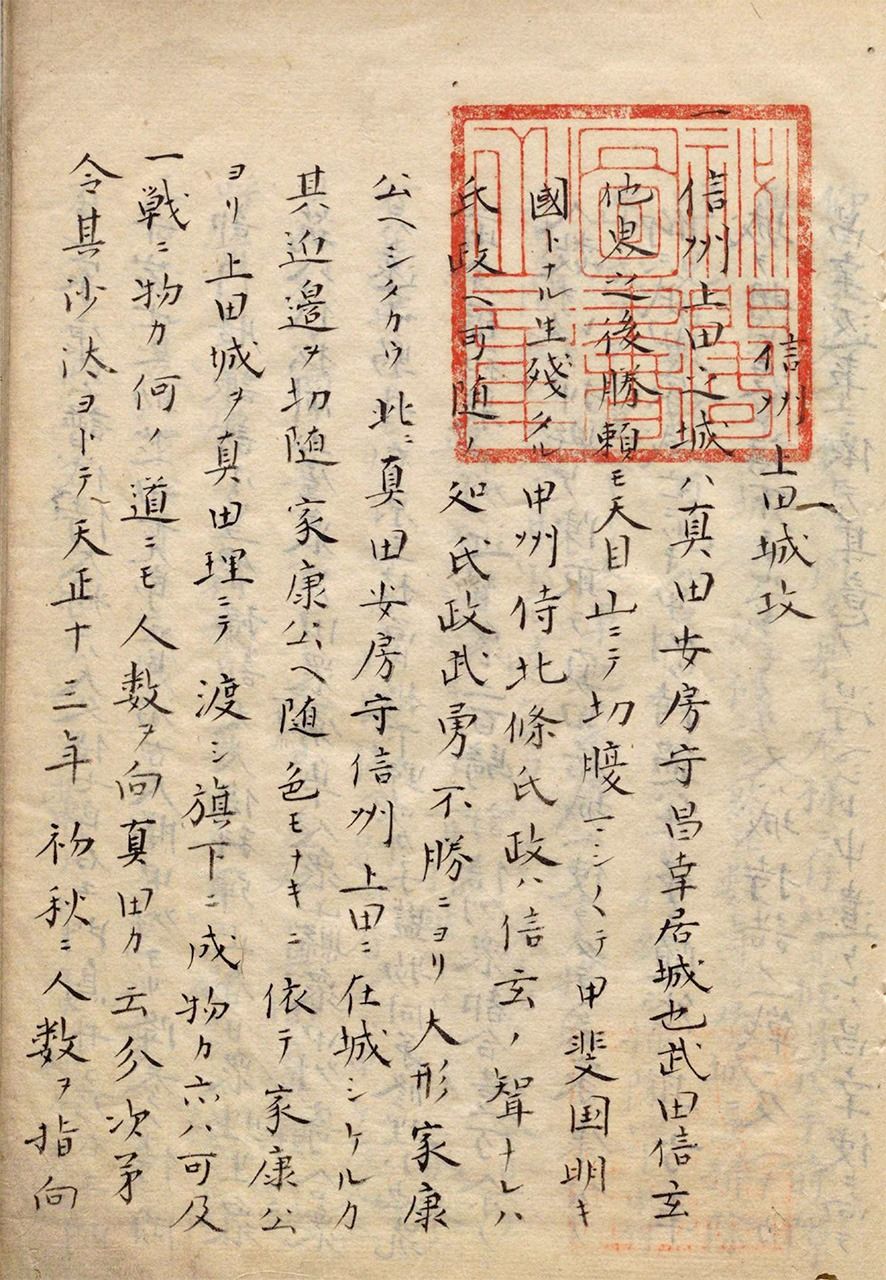 信州上田城攻
一信州上田之城ハ真田安房守昌幸居城也武田信玄
他界之後勝頼モ天目山ニテ切腹マシ〱テ甲斐国明キ
國トナル生残タル甲州侍北條氏政ハ信玄ノ聟ナレハ
氏政ヘ可随ノ処氏政武勇不勝ニヨリ大形家康
公ヘシタカウ此ニ真田安房守信州上田ニ在城シケルカ
其近邊ヲ切随家康公ヘ随色モナキニ依テ家康公
ヨリ上田城ヲ真田理ニテ渡シ旗下ニ成物カ六ハ可及
一戦ニ物カ何ノ道ニモ人数ヲ向真田カ云分次第
令其沙汰ヨトテ天正十三年初秋ニ人数ヲ指向